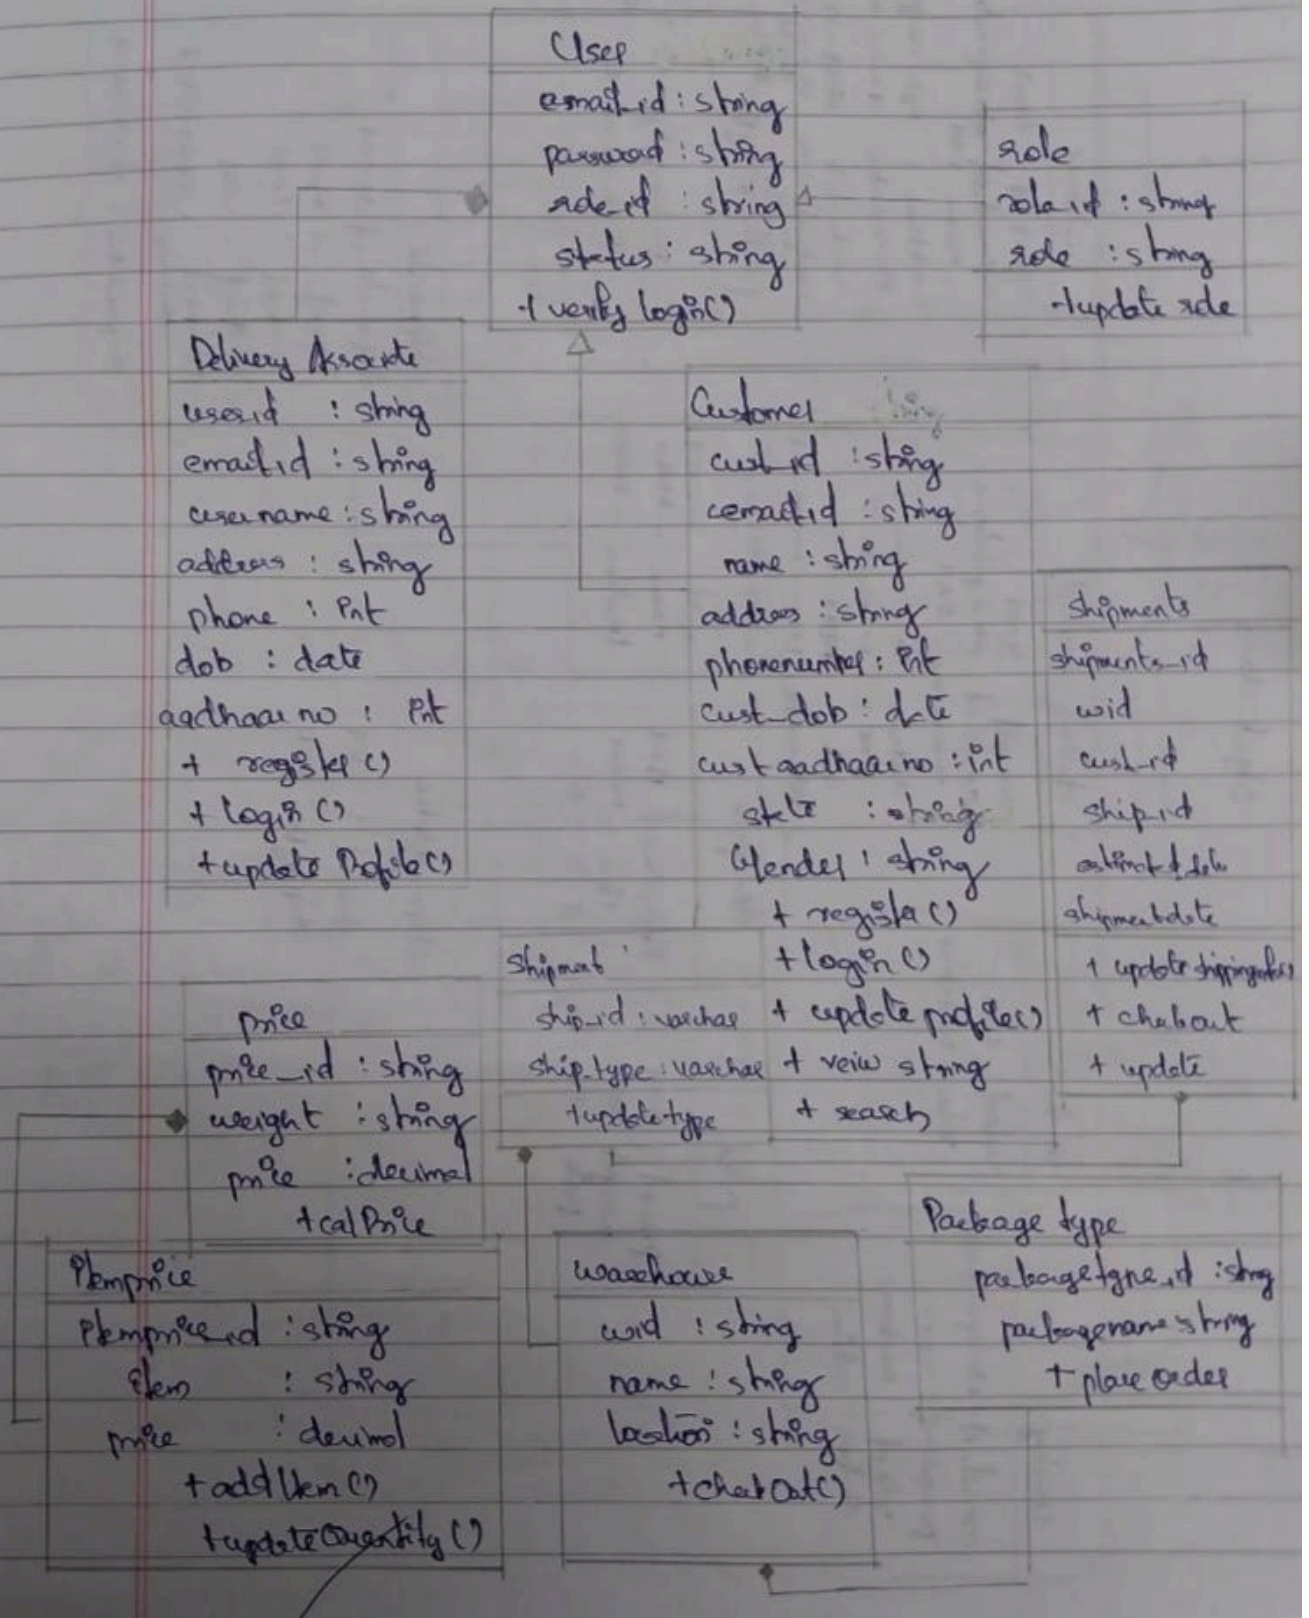 User
email_id : string
password : string
role_id : string
status : string
+ verify login()
role
role_id : string
role : string
+update role
Delivery Associate
user_id : string
email_id : string
username : string
address : string
phone : int
dob : date
aadhaar no : int
+ register ()
+ login ()
+update Profile()
Customer
cust_id : string
cemail_id : string
name : string
address : string
phonenumber : int
cust_dob : date
cust aadhaar no : int
state : string
Gender : string
+ register ()
+ login ()
+ update profile()
+ veiw string
+ search
shipments
shipments_id
wid
cust_id
ship_id
shipmentdate
+ update
+ update
Shipment
ship_id : varchar
ship_type : varchar
+updatetype
price
price_id : string
weight : string
price : decimal
+calPrice
Itemprice
Itemprice_id : string
item : string
price : decimal
+addItem()
+updateQuantity()
warehouse
wid : string
name : string
location : string
Package type
packagetype_id : string
packagename string
+ place order